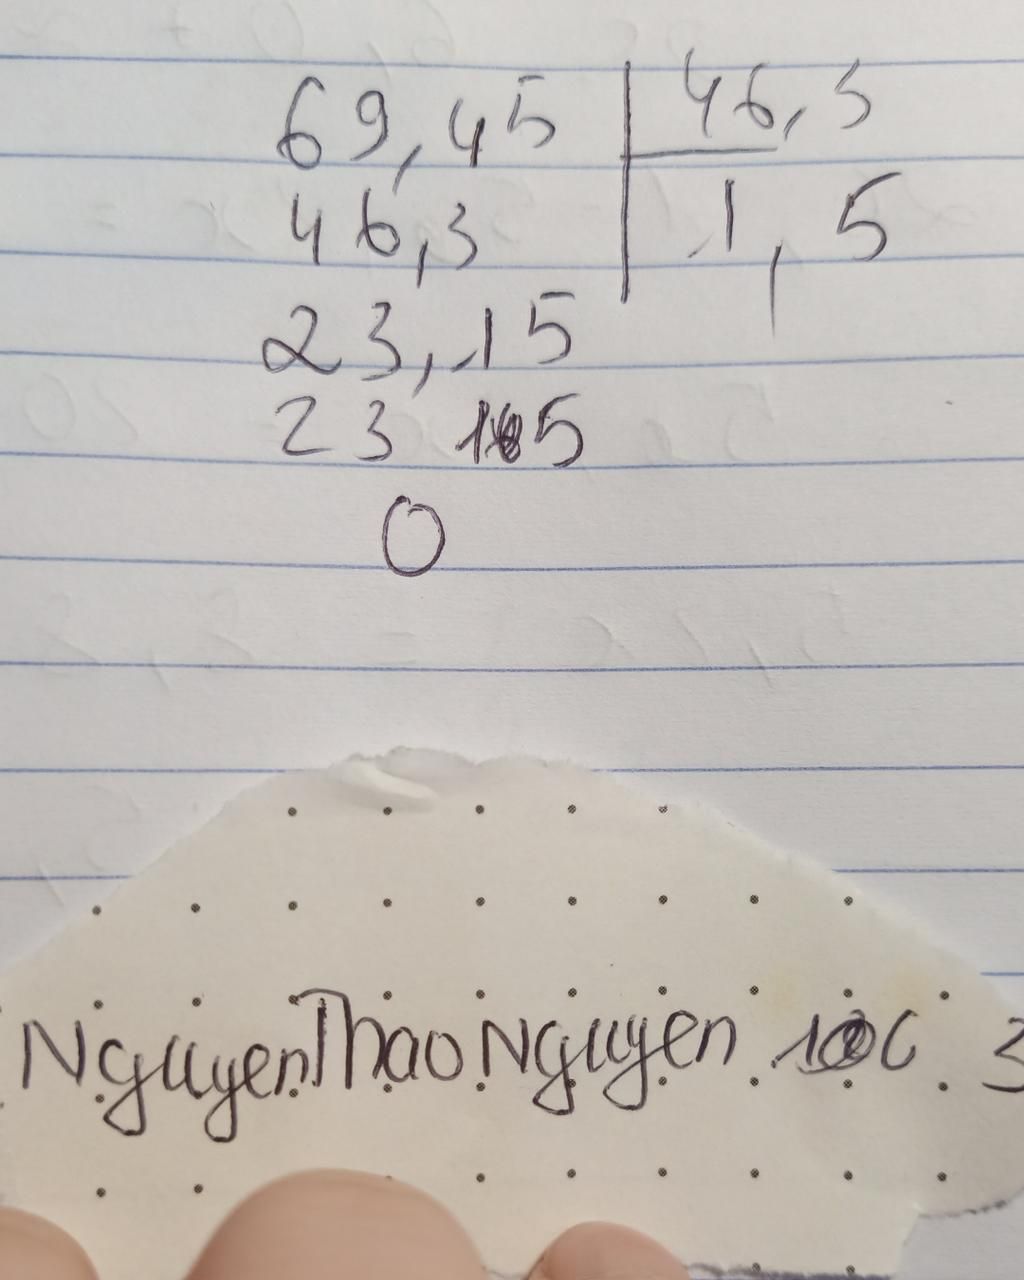 69,45 46,3
46,3 1,5
23,15
23 15
0
Nguyen Thao Nguyen 3